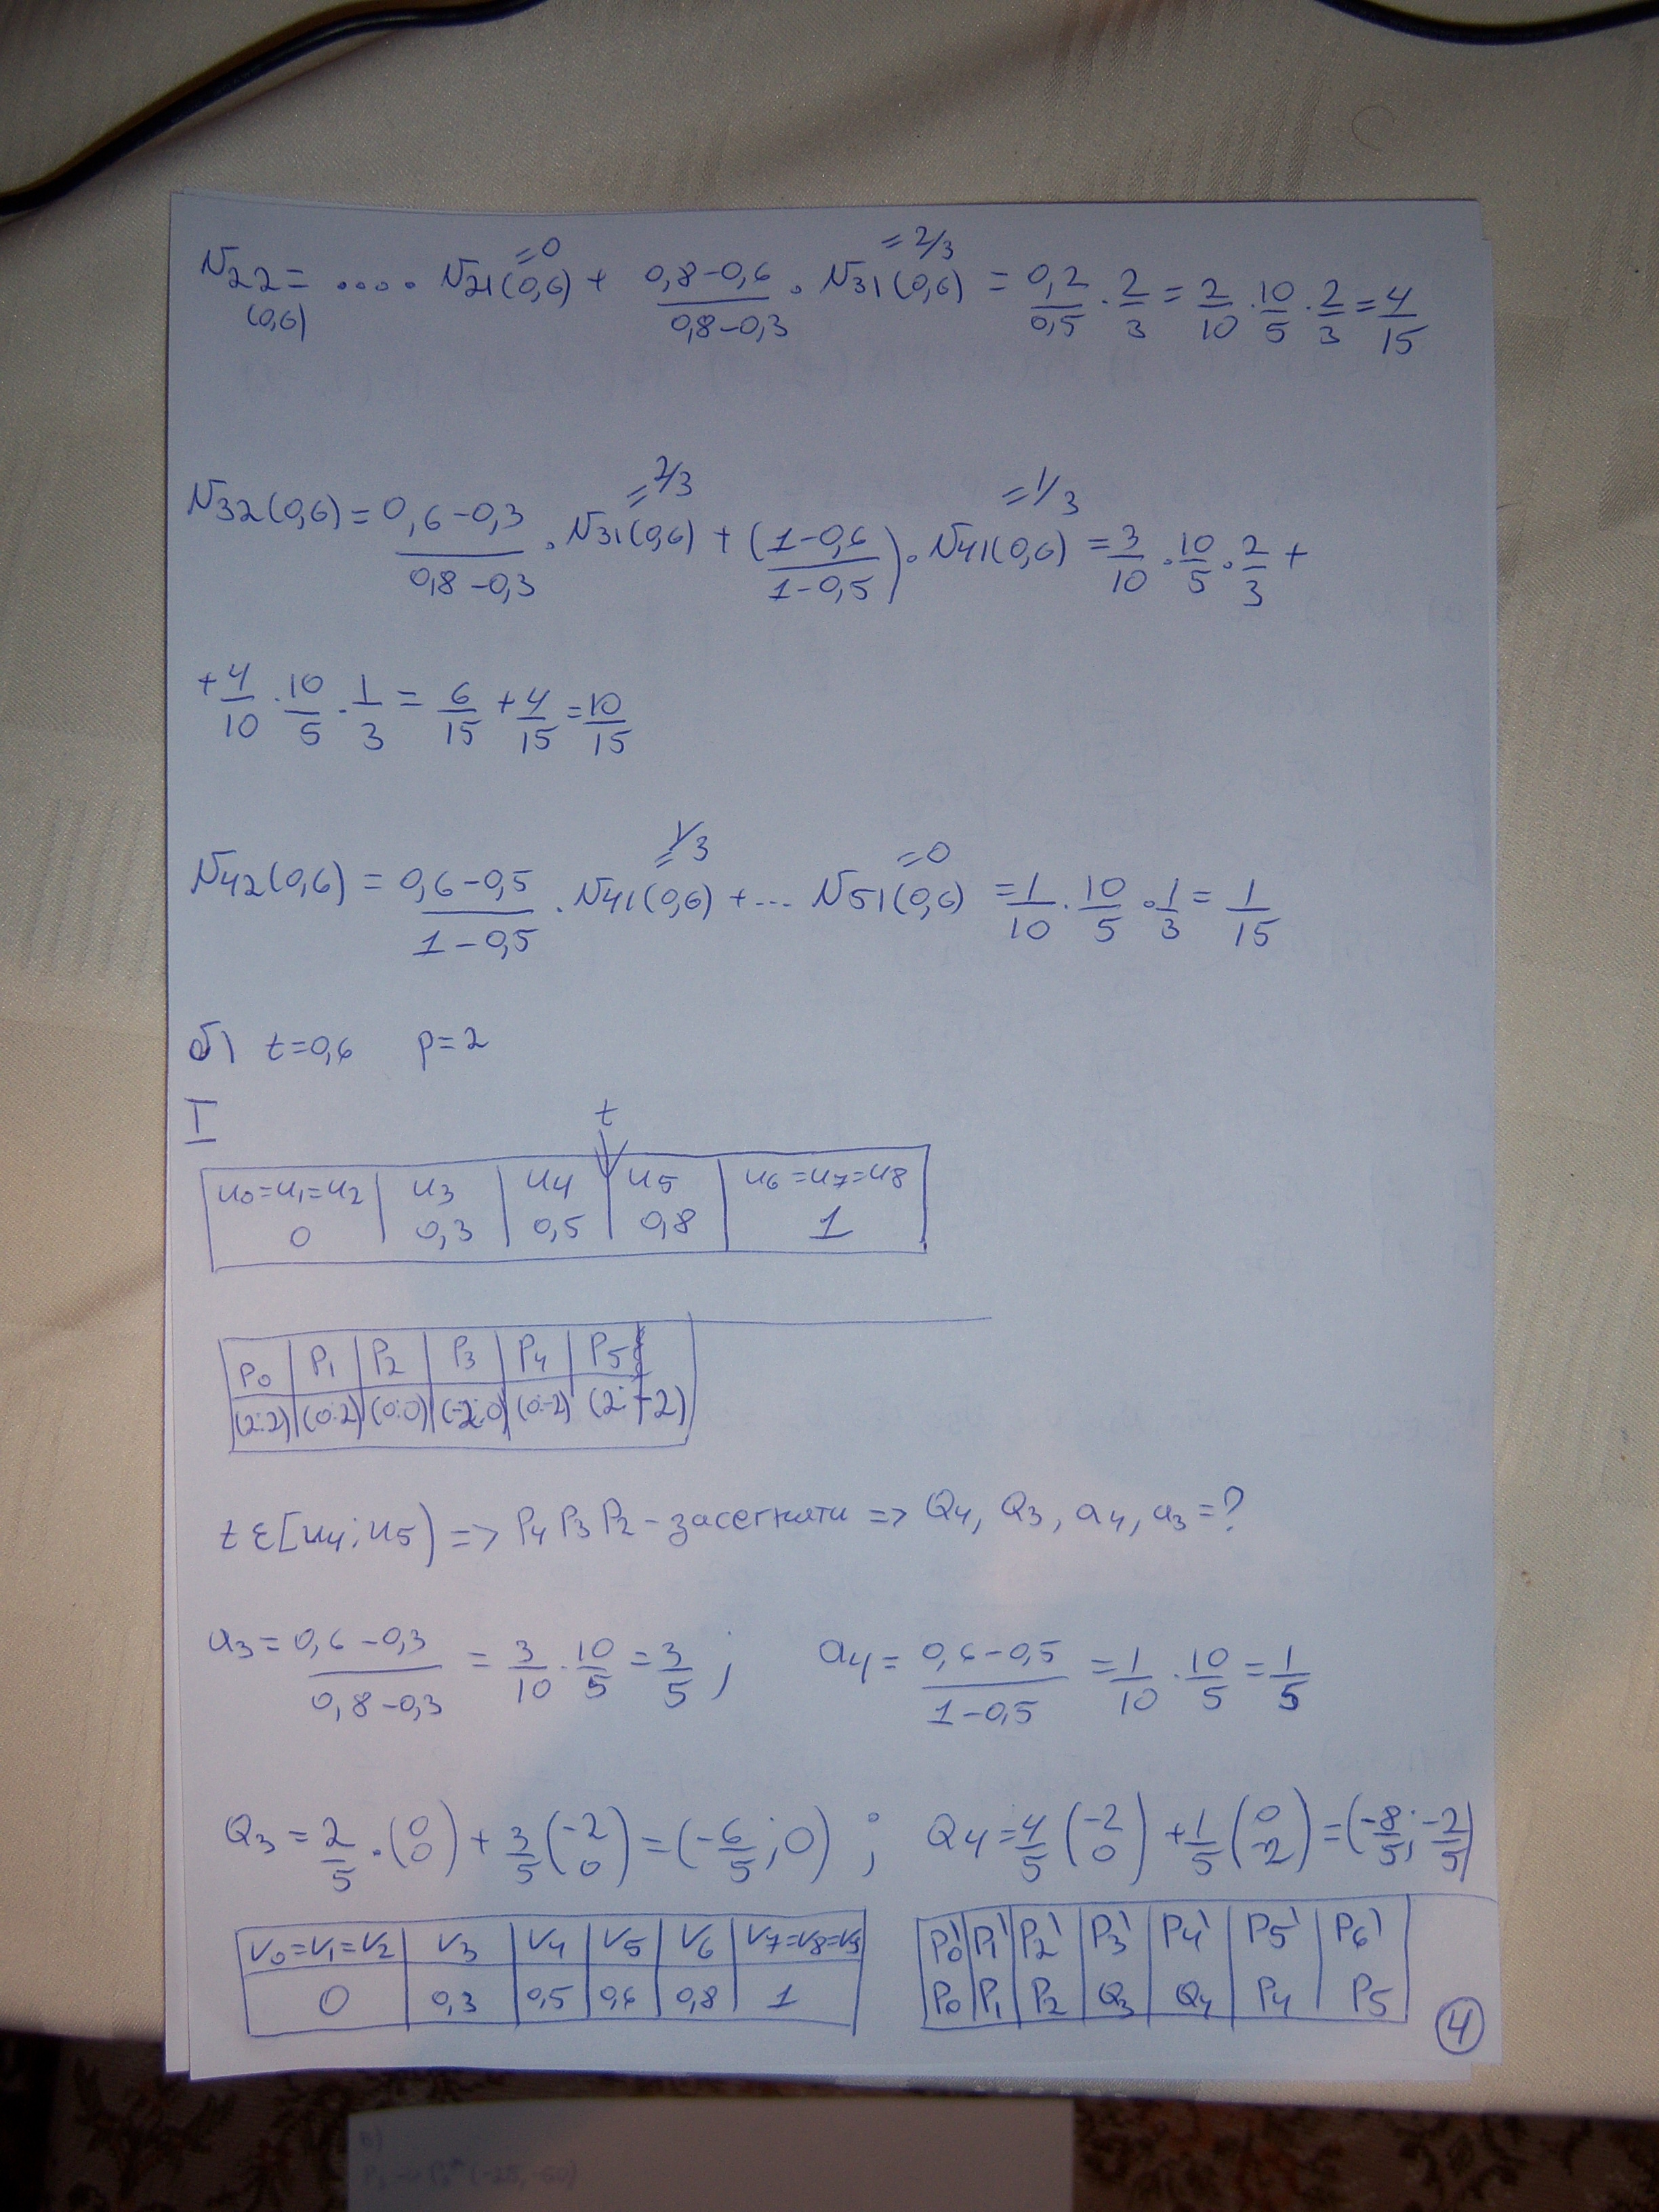 N22(0,6) = .... N21(0,6) + (0,8-0,6)/(0,8-0,3) . N31(0,6) = 0,2/0,5 . 2/3 = 2/10 . 10/5 . 2/3 = 4/15
=0 =2/3
N32(0,6) = (0,6-0,3)/(0,8-0,3) . N31(0,6) + ((1-0,6)/(1-0,5)) . N41(0,6) = 3/10 . 10/5 . 2/3 +
=2/3 =1/3
+ 4/10 . 10/5 . 1/3 = 6/15 + 4/15 = 10/15
N42(0,6) = (0,6-0,5)/(1-0,5) . N41(0,6) + ... N51(0,6) = 1/10 . 10/5 . 1/3 = 1/15
=1/3 =0
б) t=0,6 p=2
I
t
u0=u1=u2 u3 u4 u5 u6=u7=u8
0 0,3 0,5 0,8 1
P0 P1 P2 P3 P4 P5
(2;2) (0;2) (0;0) (-2;0) (0;-2) (2;-2)
t ε [u4; u5) => P4 P3 P2 - засегнати => Q4, Q3, a4, a3 = ?
a3 = (0,6-0,3)/(0,8-0,3) = 3/10 . 10/5 = 3/5 ; a4 = (0,6-0,5)/(1-0,5) = 1/10 . 10/5 = 1/5
Q3 = 2/5 . (0 0) + 3/5 (-2 0) = (-6/5; 0) ; Q4 = 4/5 (-2 0) + 1/5 (0 -2) = (-8/5; -2/5)
V0=V1=V2 V3 V4 V5 V6 V7=V8=V9
0 0,3 0,5 0,6 0,8 1
P0' P1' P2' P3' P4' P5' P6'
P0 P1 P2 Q3 Q4 P4 P5
4